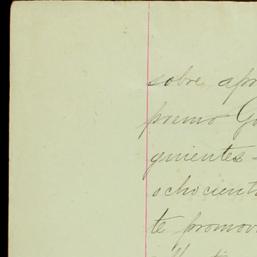 sobre apr
premo Go
quientes
ochocient
te promov